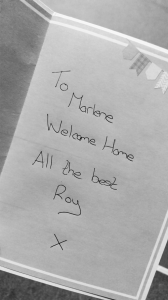 To Marlene
Welcome Home
All the best
Roy
X